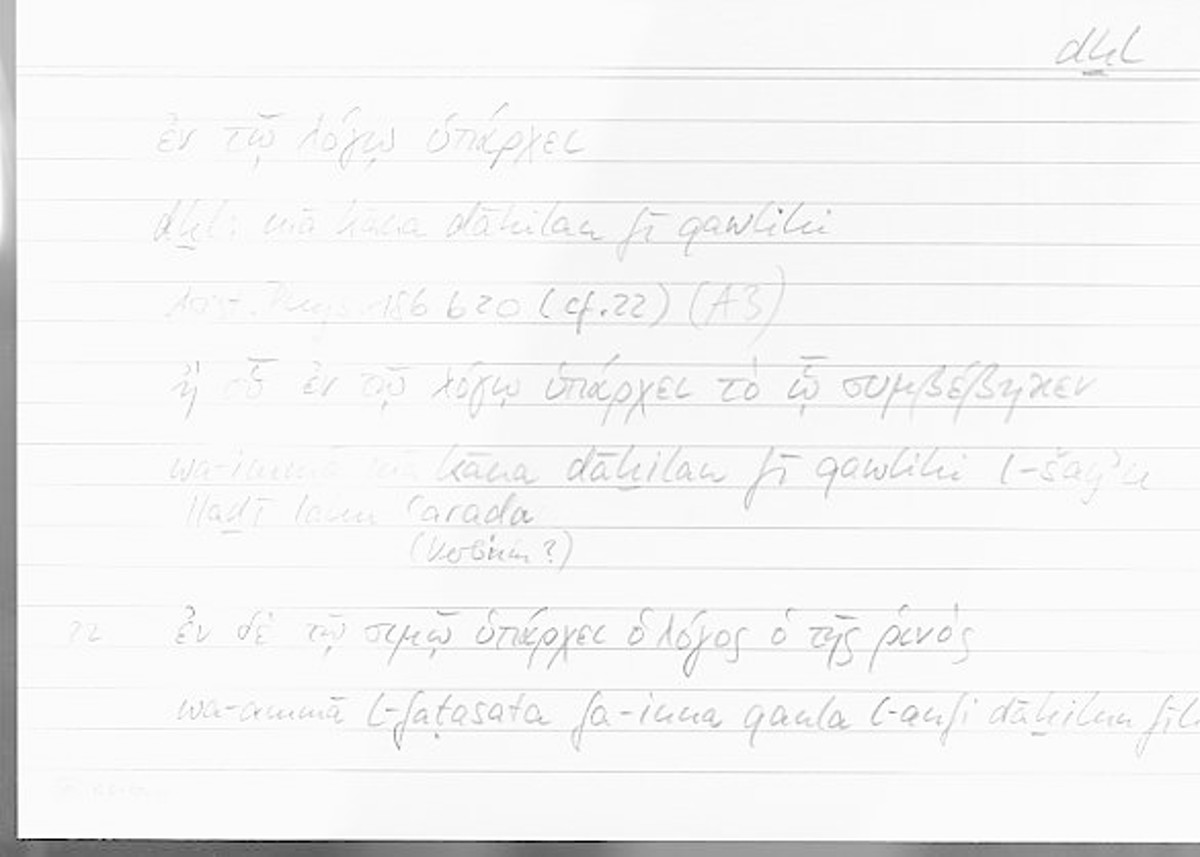 dḫl
ἐν τῷ λόγῳ ὑπάρχει
dḫl: mā kāna dāḫilan fī qawlihi
Arist. Phys. 186 b 20 (cf. 22) (A3)
ἢ οὗ ἐν τῷ λόγῳ ὑπάρχει τὸ ᾧ συμβέβηκεν
wa-immā mā kāna dāḫilan fī qawlihi l-šay'u
lladī lahu ʿarada
22 ἐν δὲ τῷ σιμῷ ὑπάρχει ὁ λόγος ὁ τῆς ῥινός
wa-ammā l-faṭasata fa-inna qaula l-anfi dāḫilun fīh